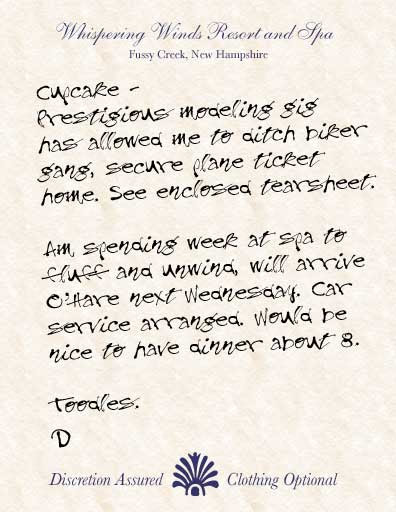 Whispering Winds Resort and Spa
Fussy Creek, New Hampshire
Cupcake -
Prestigious modeling gig
has allowed me to ditch biker
gang, secure plane ticket
home. See enclosed tearsheet.
Am spending week at spa to
fluff and unwind, will arrive
O'Hare next Wednesday. Car
service arranged. Would be
nice to have dinner about 8.
Toodles.
D
Discretion Assured Clothing Optional